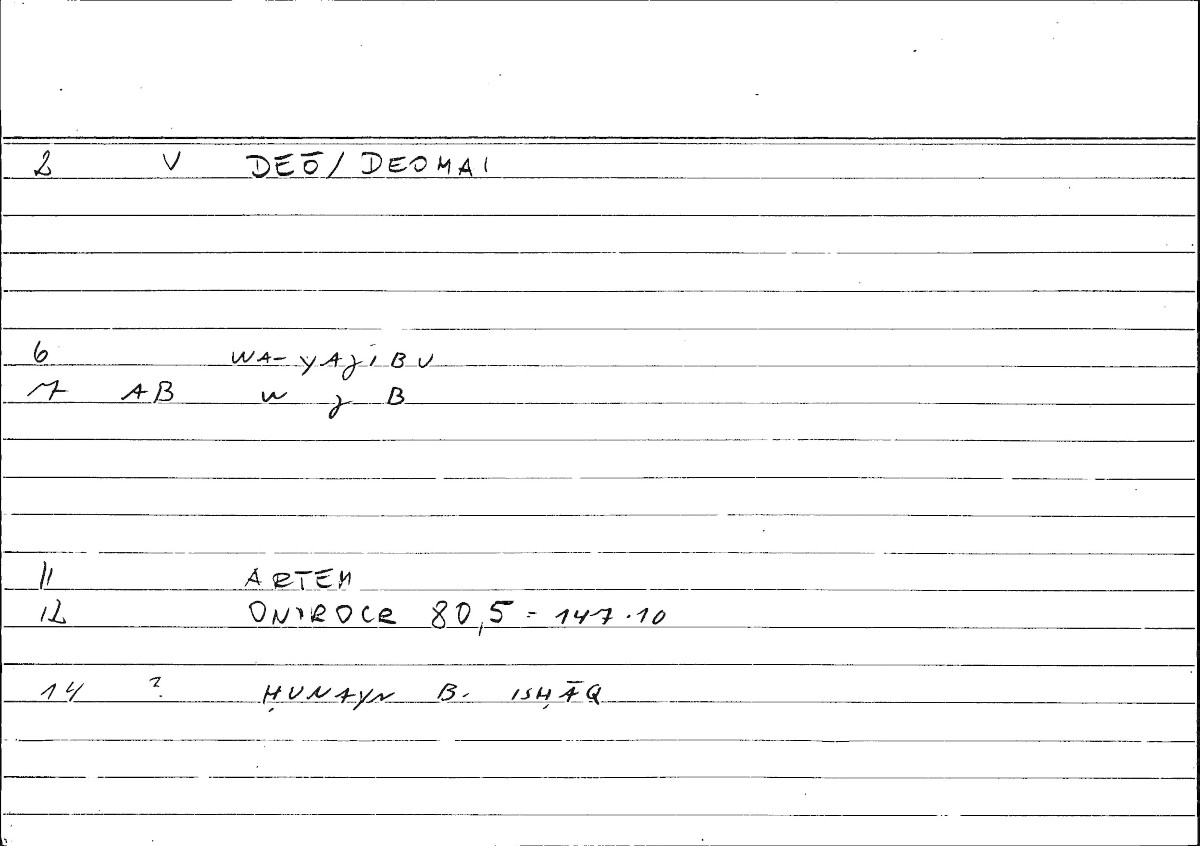 2 V DEŌ/DEOMAI
6 WA-YAJIBU
7 AB W J B
11 ARTEM
12 ONIROCR 80,5 = 147.10
14 ? ḤUNAYN B. ISḤĀQ